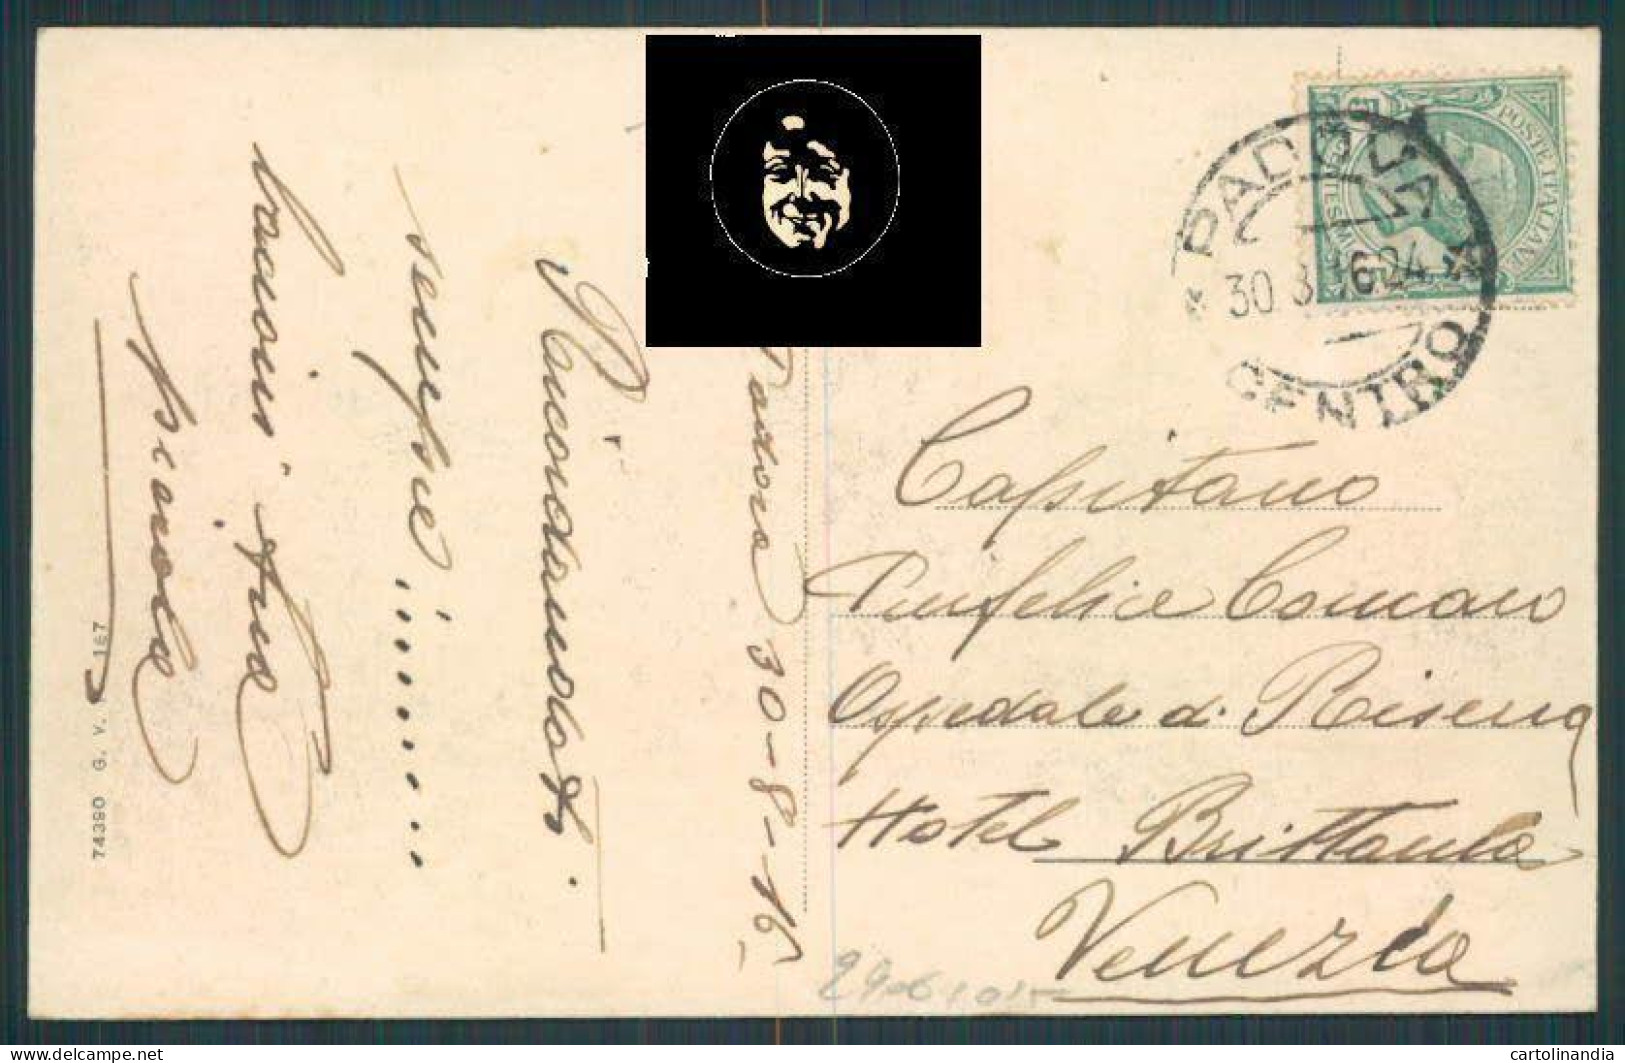 Padova 30-8-16
Ricordandoti
sempre.........
bacioni tuo
POSTE ITALIANE
PADOVA
30.8.16.24
CENTRO
Capitano
Panfelice Comaro
Ospedale di Riserva
Hotel Brittania
Venezia
74390 G. V. 167
cartolinandia
www.delcampe.net